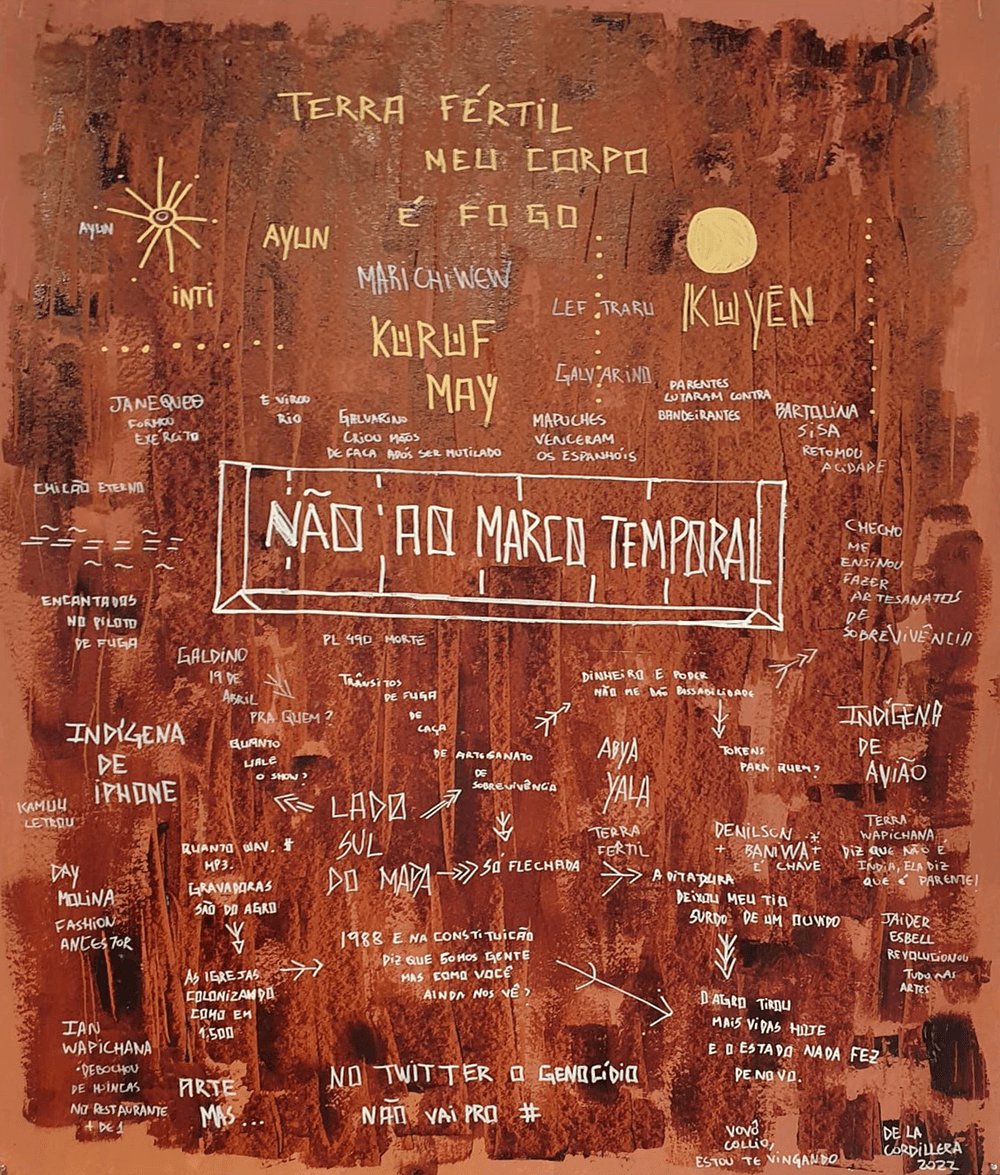 TERRA FÉRTIL
MEU CORPO
É FOGO
AYUN
AYUN
INTI
MARICHIWEW
KURUF
MAY
LEF TRARU
GALVARINO
KUYĒN
JANEQUEO
FORMOU
EXÉRCITO
E VIROU
RIO
GALVARINO
CRIOU MÃOS
DE FACA APÓS SER MUTILADO
MAPUCHES
VENCERAM
OS ESPANHÓIS
PARENTES
LUTARAM CONTRA
BANDEIRANTES
BARTOLINA
SISA
RETOMOU
A CIDADE
CHICÃO ETERNO
NÃO AO MARCO TEMPORAL
ENCANTADOS
NO PILOTO
DE FUGA
CHECHO
ME
ENSINOU
FAZER
ARTESANATOS
DE
SOBREVIVÊNCIA
PL 490 MORTE
GALDINO
19 DE
ABRIL
PRA QUEM?
TRÂNSITOS
DE FUGA
DE
CAÇA
DE ARTESANATO
DE
SOBREVIVÊNCIA
DINHEIRO E PODER
NÃO ME DÃO PASSABILIDADE
TOKENS
PARA QUEM?
INDÍGENA
DE
IPHONE
QUANTO
VALE
O SHOW?
ABYA
YALA
TERRA
FÉRTIL
INDÍGENA
DE
AVIÃO
KAMUU
LETROU
LADO
SUL
DO MAPA
SÓ FLECHADA
DENILSON
BANIWA
É CHAVE
TERRA
WAPICHANA
DIZ QUE NÃO É
ÍNDIA, ELA DIZ
QUE É PARENTE!
DAY
MOLINA
FASHION
ANCESTOR
QUANTO WAV. #
MP3.
GRAVADORAS
SÃO DO AGRO
A DITADURA
DEIXOU MEU TIO
SURDO DE UM OUVIDO
JAIDER
ESBELL
REVOLUCIONOU
TUDO NAS
ARTES
1988 E NA CONSTITUICÃO
DIZ QUE SOMOS GENTE
MAS COMO VOCÊ
AINDA NOS VÊ?
AS IGREJAS
COLONIZANDO
COMO EM
1.500
O AGRO TIROU
MAIS VIDAS HOJE
E O ESTADO NADA FEZ
DE NOVO.
IAN
WAPICHANA
DEBOCHOU
DE WINCAS
NO RESTAURANTE
+ DE 1
ARTE
MAS...
NO TWITTER O GENOCÍDIO
NÃO VAI PRO #
VOVÔ
COLLIO,
ESTOU TE VINGANDO
DE LA
CORDILLERA
2022